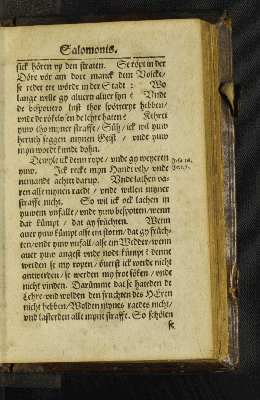 Salomonis.
sick hören vp den straten. Se röpt in der
Döre vör am dore manck dem Volcke/
se redet ere wörde in der Stadt: Wo
lange wille gy aluern aluer syn? Vnde
de bespotters lust tho spötterye hebben/
vnde de rökelosen de lehre haten? Kehret
yuw tho myner straffe/ Süh/ ick wil yuw
heruth seggen mynen Geist/ vnde yuw
myn wordt kundt dohn.
Dewyle ick denn rope/ vnde gy weyeren
yuw. Ick recke myn Handt vth/ vnde
nemandt achtet darup. Vnde lathen va-
ren alle mynen raedt/ vnde willen myner
straffe nicht. So wil ick ock lachen in
yuwem vnfalle/ vnde yuw bespotten/ wenn
dat kümpt/ dat gy früchten. Wenn
auer yuw kümpt alse ein storm/ dat gy früch-
ten/ vnde yuw vnfall/ alse ein Wedder/ wenn
auer yuw angest vnde nodt kümpt: denne
werden se my ropen/ öuerst ick werde nicht
antwerden/ se werden my froe söken/ vnde
nicht vinden. Darümme dat se hateden de
Lehre/ vnd wolden den fruchten des HEren
nicht hebben/ Wolden mynes raedes nicht/
vnd lasterden alle myne straffe. So schölen
se